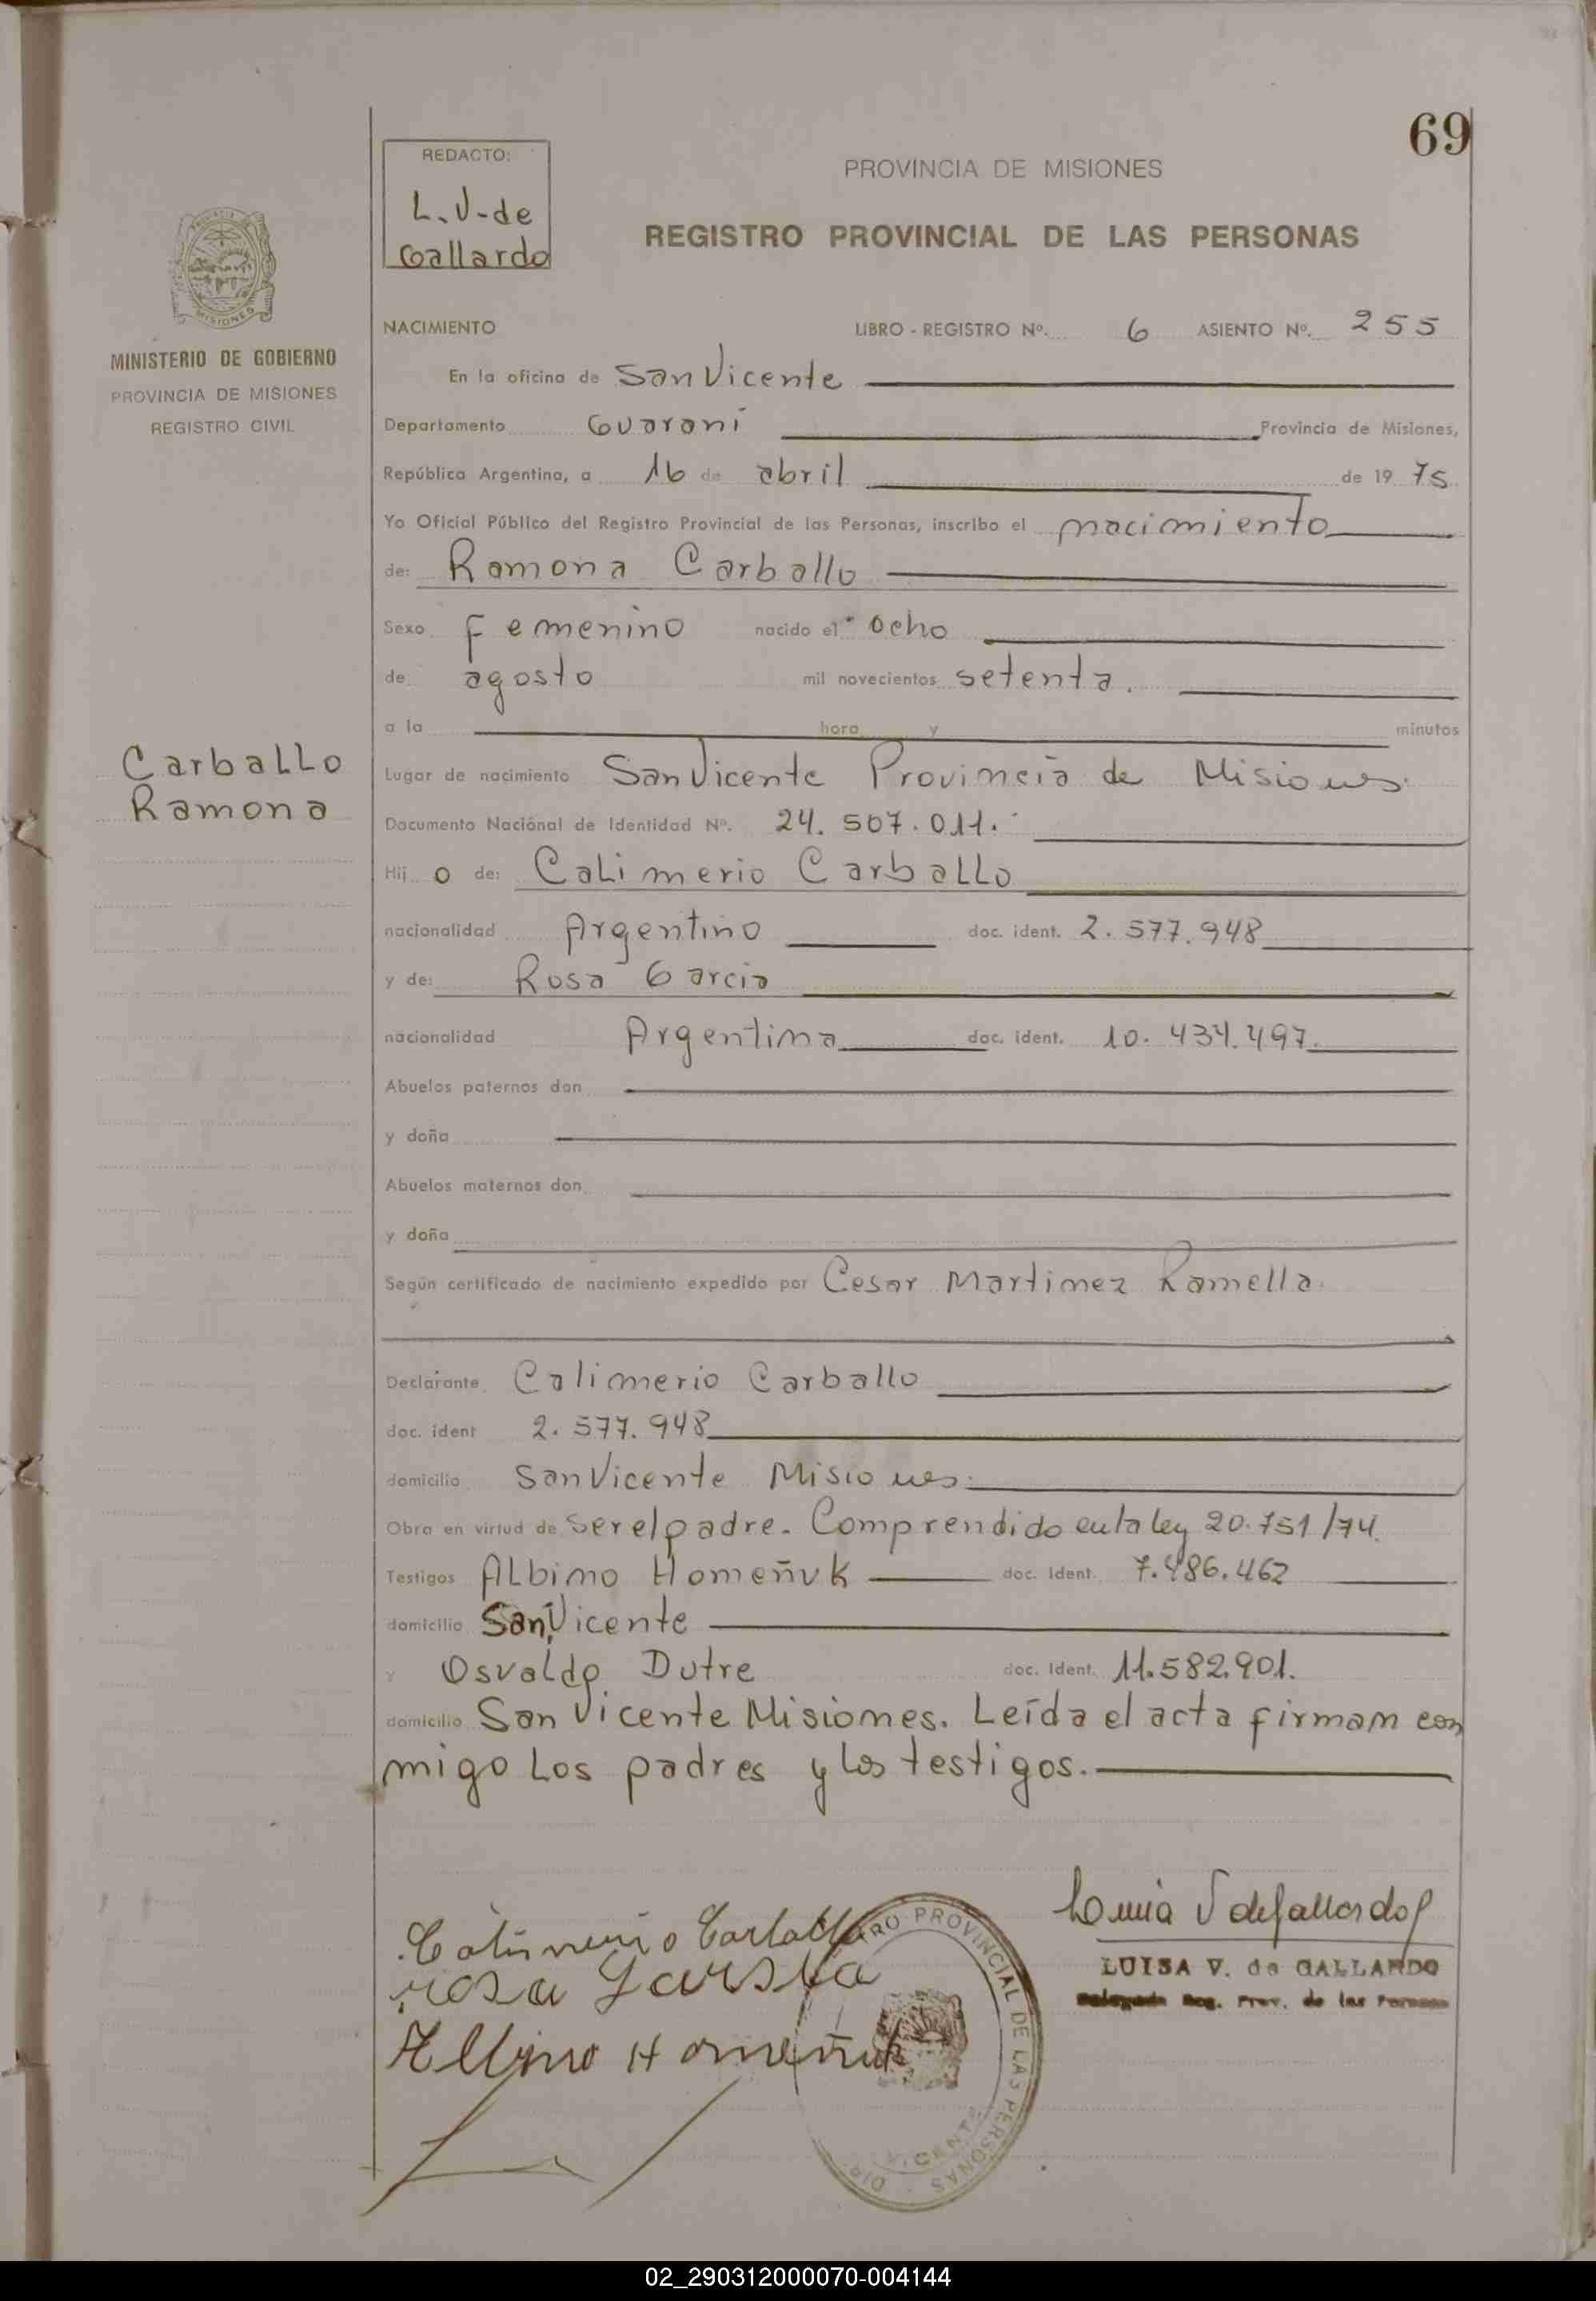 69
REDACTO:
L. V- de
Gallardo
PROVINCIA DE MISIONES
REGISTRO PROVINCIAL DE LAS PERSONAS
MISIONES
MINISTERIO DE GOBIERNO
PROVINCIA DE MISIONES
REGISTRO CIVIL
NACIMIENTO LIBRO - REGISTRO Nº. 6 ASIENTO Nº. 255
En la oficina de San Vicente
Departamento Guaraní Provincia de Misiones,
República Argentina, a 16 de abril de 19 75
Yo Oficial Público del Registro Provincial de las Personas, inscribo el nacimiento
de: Ramona Carballo
Sexo Femenino nacido el ocho
de agosto mil novecientos setenta.
a la hora y minutos
Carballo
Ramona
Lugar de nacimiento San Vicente Provincia de Misiones.
Documento Nacional de Identidad Nº. 24. 507. 011.
Hij o de: Calimerio Carballo
nacionalidad Argentino doc. ident. 2. 577. 948
y de: Rosa Garcia
nacionalidad Argentina doc. ident. 10. 434. 497.
Abuelos paternos don
y doña
Abuelos maternos don
y doña
Según certificado de nacimiento expedido por Cesar Martinez Ramella.
Declarante Calimerio Carballo
doc. ident 2. 577. 948
domicilio San Vicente Misiones.
Obra en virtud de ser el padre. Comprendido en la ley 20. 751/74.
Testigos Albino Homeñuk doc. Ident. 7. 486. 462
domicilio San Vicente
y Osvaldo Dutre doc. Ident. 11. 582. 901.
domicilio San Vicente Misiones. Leída el acta firman con
migo los padres y los testigos.
Calimerio Carballo
rosa Garsia
Albino Homeñuk
PROVINCIAL DE LAS PERSONAS
Luisa V de Gallardo
LUISA V. de GALLARDO
Delegada Reg. Prov. de las Personas
02_290312000070-004144